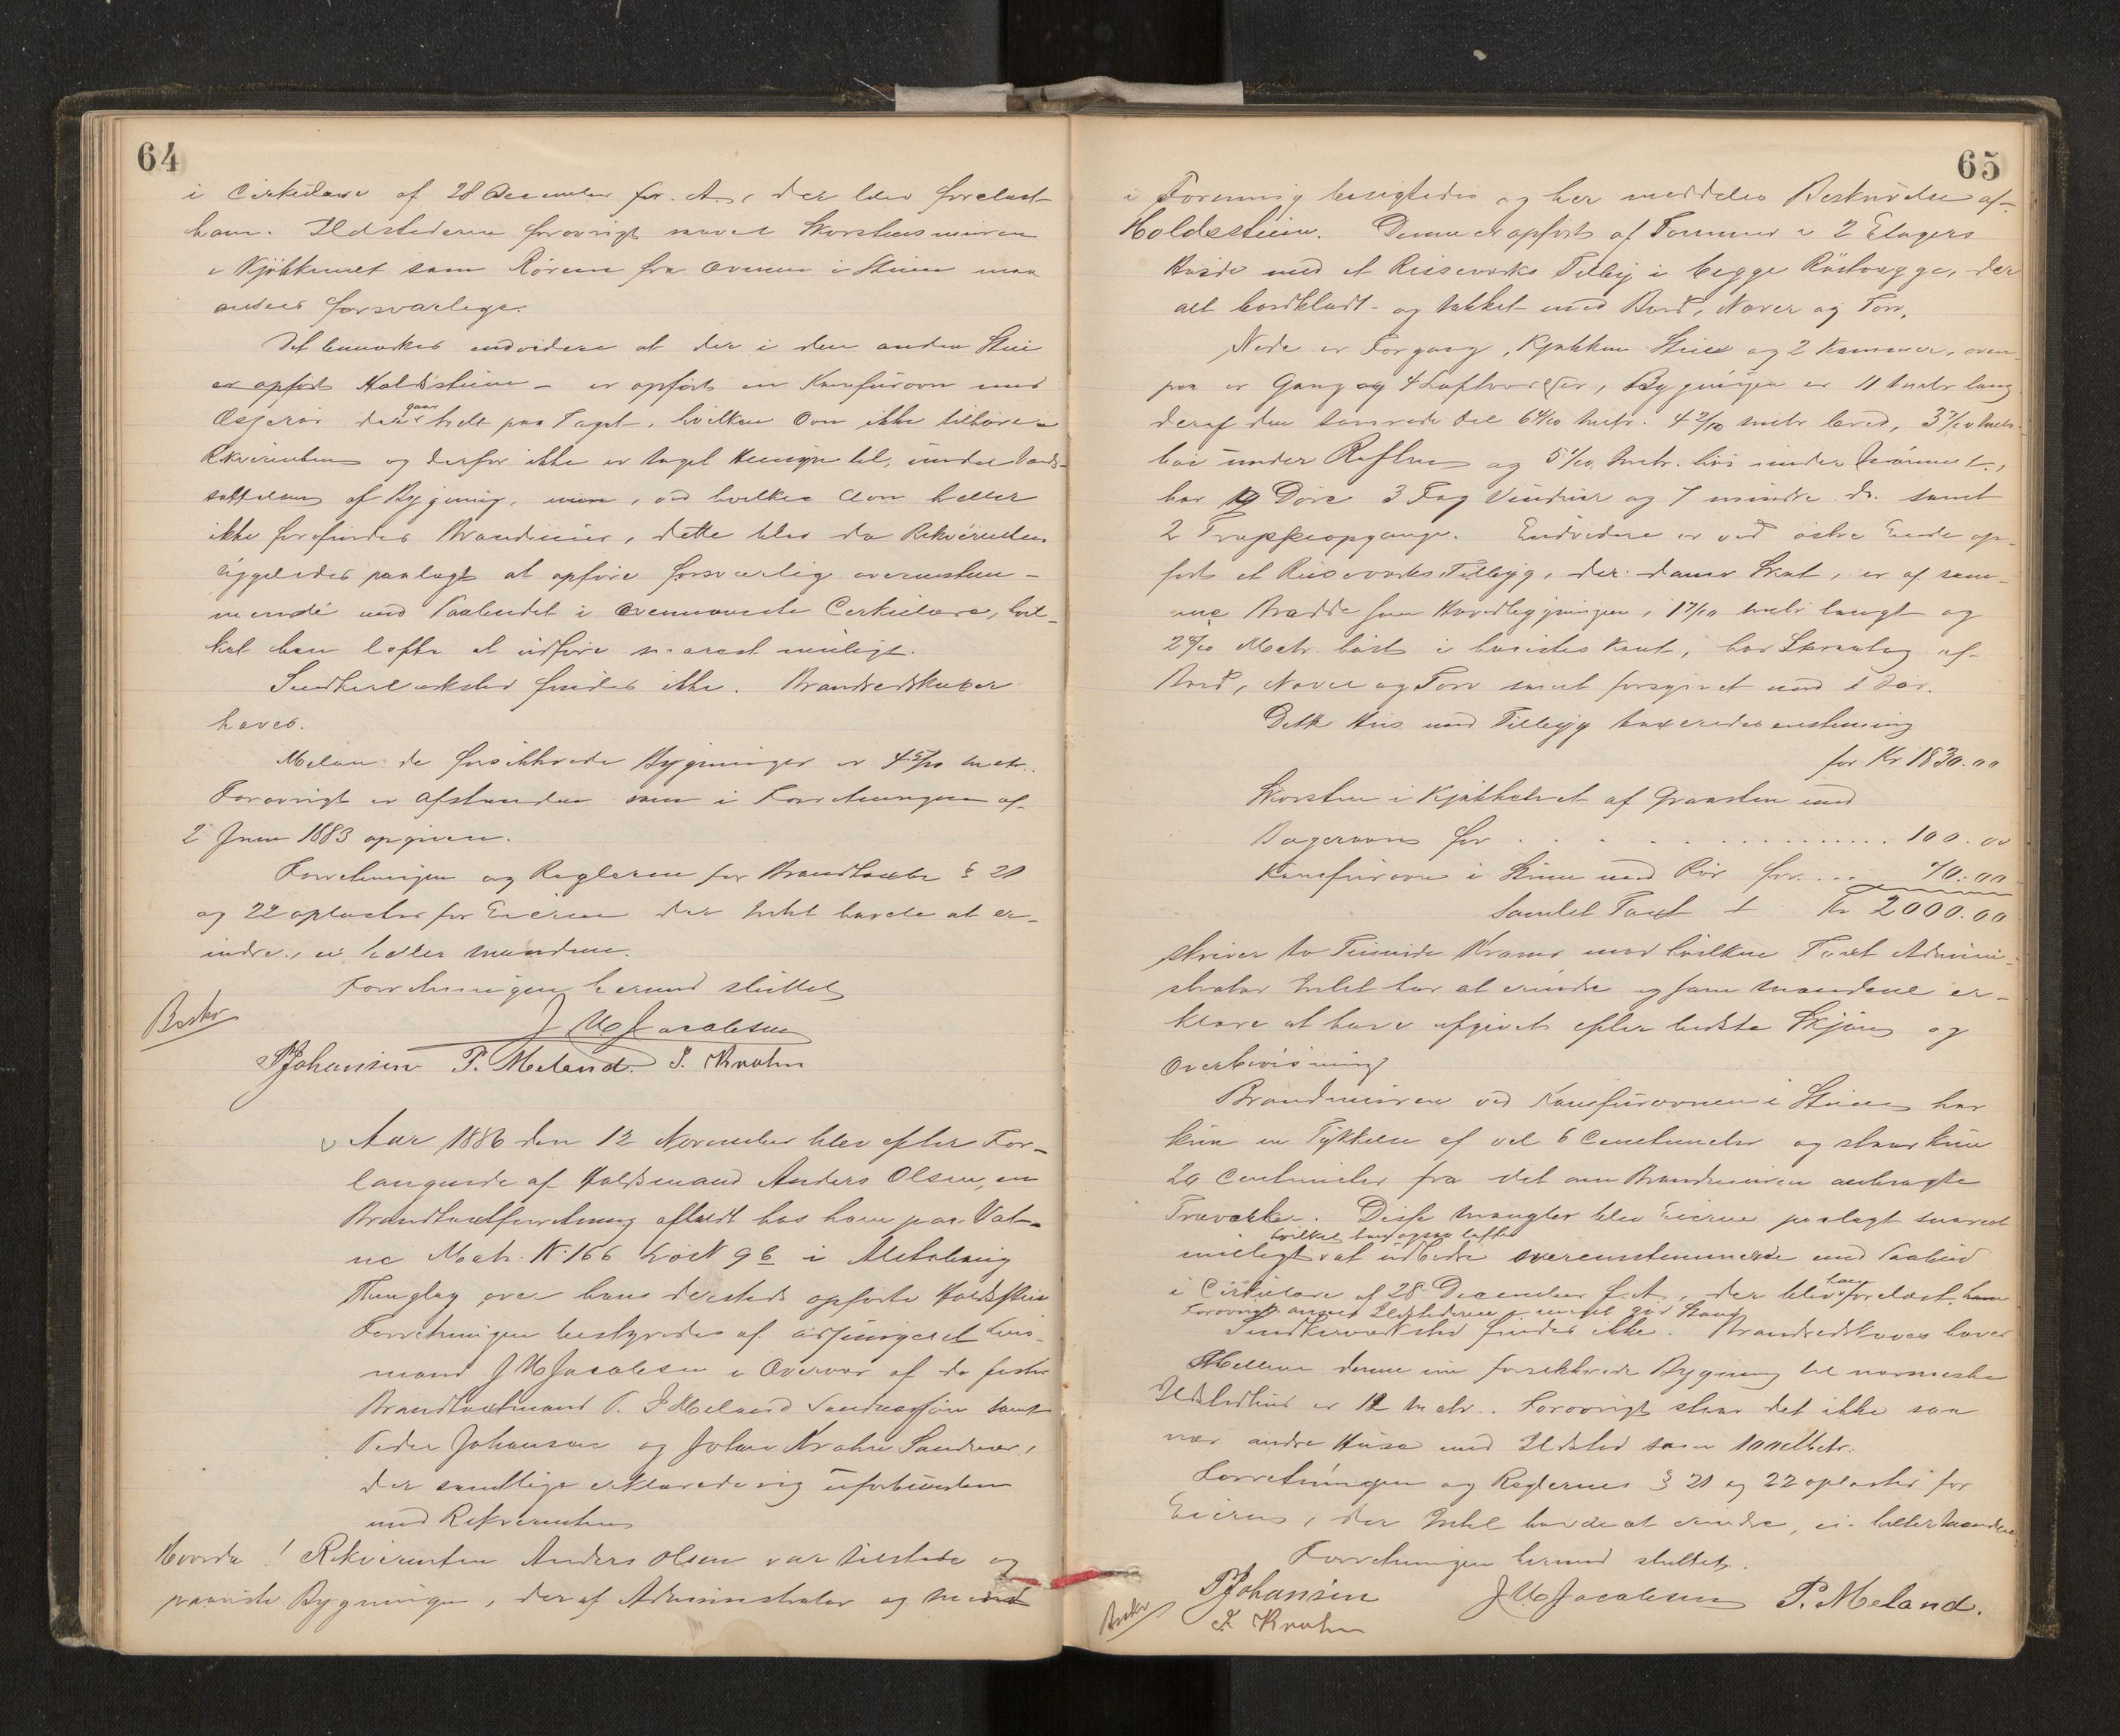 64
i Cirkulære af 28 December for. A., der blev forelæst
ham. Ildstederne forøvrigt saavel Skorstensmuren
i Kjøkkenet som Rørene fra Ovnen i Stuen maa
ansees forsvarlige.
Det bemærkes endvidere at der i den anden Stue
er opført Koldstuen - er opført en Kamfurovn med
Osjerør der gaar helt paa Taget, hvilken Ovn ikke tilhører
Rekvirenten og derfor ikke er taget Hensyn til, under Værd-
sættelsen af Bygning, men, ved hvilken Ovn heller
ikke forefindes Brandmur, dette blev da Rekvirenten
ligeledes paalagt at opføre forsvarlig overensstem-
mende med Paabudet i ovennævnte Cirkulære, hvil-
ket han lofte at udføre snarest muligt.
Snedkerværksted findes ikke. Brandredskaber
haves.
Melom de forsikkrede Bygninger er 4 5/10 metr.
Forøvrigt er afstanden som i Forretningen af
2 Juni 1883 opgiven.
Forretningen og Reglerne for Brandtaxter § 21
og 22 oplæstes for Eieren der Intet havde at er-
indre, ei heller Mændene.
Forretningen hermed sluttet
J M Jacobsen
Beskr
P Johansen P. Meland. J. Krohn
Aar 1886 den 12 November blev efter For-
langende af Holdsmand Anders Olsen, en
Brandtaxtforretning afholdt hos ham paa Vat-
ne Matr. N. 166 Løbn 9 b i
Thinglag over hans dersteds opførte Holdsstue
Forretningen bestyredes af adjungeret Lens-
mand J M Jacobsen i Overvær af de faste
Brandtaxtmænd P. J Meland Sandnessjøen samt
Peder Johansen og Johan Krohn Sandnes,
der samtlige erklærede sig uforbunden
med Rekvirenten
Hvorda! Rekvirenten Anders Olsen var tilstede og
paaviste Bygningen, der af Administrator og Mænd
65
i Forening besigtedes og her meddeles Beskrivelse af
Holdestuen. Denne er opført af Tømmer i 2 Etagers
Høide med et Reisverks Tilbyg i begge Røstvægge, der
alt bordklædt og tækket med Bord, Næver og Torv.
Nede er Forgang, Kjøkken Stue og 2 Kammer, oven-
paa er Gang og 4 Loftværelser, Bygningen er 11 Metr lang
deraf den tømrede Del 6 4/10 metr. 4 9/10 metr bred, 3 7/10 metr
høi under Raften og 5 1/10 metr. høi under Mønnet,
har 19 Døre 3 Fag Vinduer og 7 mindre Do. samt
2 Trappeopgange. Endvidere er ved østre Ende op-
ført et Reisverks Tilbyg, der danner Skot, er af sam-
me Bredde som Hovedbygningen, 1 7/10 metr langt og
2 8/10 Metr. høit i høieste Kant, har Skraatag af
Bord, Næver og Torv samt forsynet med 1 Dør.
Dette Hus med Tilbyg taxeredes enstemmig
for Kr 1830.00
Skorsten i Kjøkkenet af Graasten med
Bagerovn for . . . . . . . . . 100.00
Kamfurovn i Stuen med Rør for . . . 70.00
Samlet Taxt Kr 2000.00
skriver to Tusinde Kroner mod hvilken Taxt Admini-
strator Intet har at erindre og som Mændene er-
klære at have afgivet efter bedste Skjøn og
Overbevisning
Brandmuren ved Kamfurovnen i Stuen har
kun en Tykkelse af vel 6 Centimeter og staar kun
20 Centimeter fra det om Brandmuren anbragte
Træverk. Disse Mangler blev Eieren paalagt snarest
hvilket han ogsaa lofte
muligt at udbedre overensstemmende med Paabud
i Cirkulære af 28 December f. A., der blev ham forelæst. ham
Forøvrigt ansees Ildstederne i meget god Stand
Snedkerværksted findes ikke. Brandredskaber haves
Mellem denne nu forsikkrede Bygning til nærmeste
Ildstedhus er 12 metr. Forøvrigt staar det ikke saa
nær andre Huse med Ildsted som 100 Metr.
Forretningen og Reglernes § 21 og 22 oplæstes for
Eieren, der Intet havde at erindre, ei heller Mændene
Forretningen hermed sluttet.
P Johansen J M Jacobsen P. Meland.
Beskr
J Krohn